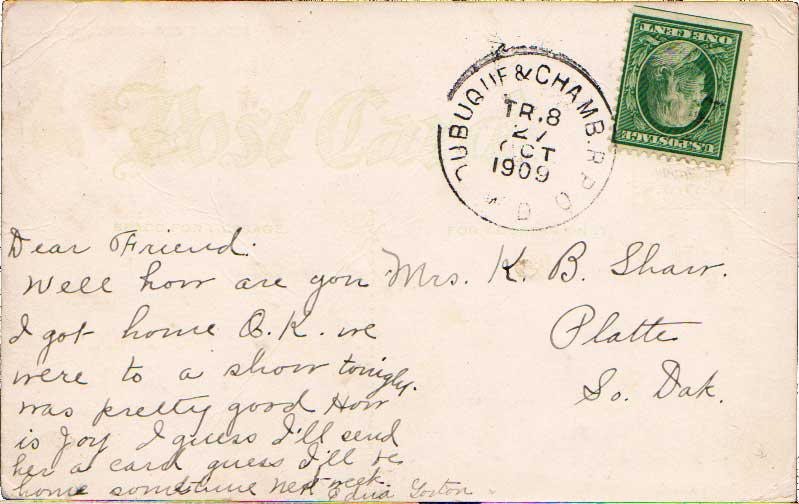 Post Card
SPACE FOR MESSAGE.
DUBUQUE & CHAMB. R.P.O.
TR. 8
27
OCT
1909
M D
U.S. POSTAGE
ONE CENT
Dear Friend:
Well how are you
I got home O.K. we
were to a show tonight.
was pretty good How
is Joy I guess I'll send
her a card guess I'll be
home sometime next week.
Edna
Mrs. K. B. Shaw.
Platte
So. Dak.